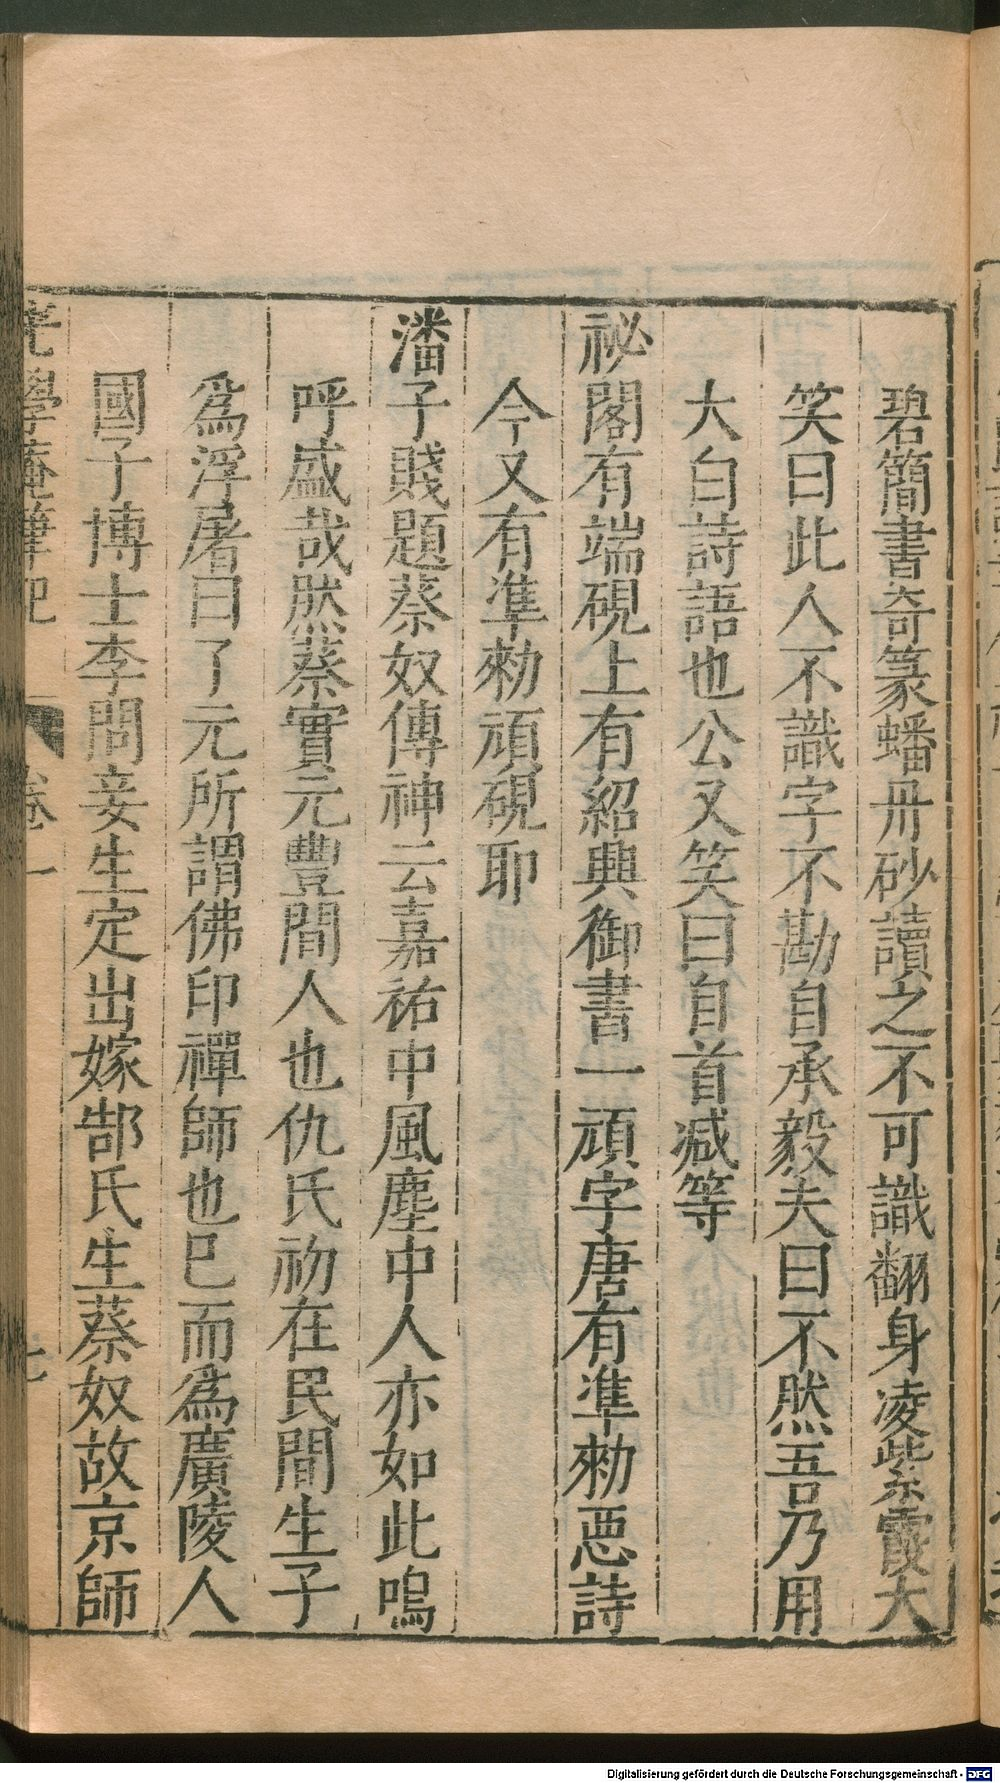 碧簡書奇篆蟠丹砂讀之不可識翻身凌紫霞大
笑曰此人不識字不勘自承毅夫曰不然吾乃用
大白詩語也公又笑曰自首减等
祕閣有端硯上有紹興御書一頑字唐有準勑惡詩
今又有準勑頑硯耶
潘子賤題蔡奴傳神云嘉祐中風塵中人亦如此嗚
呼盛哉然蔡實元豐間人也仇氏初在民間生子
爲浮屠曰了元所謂佛印禪師也巳而爲廣陵人
國子博士李問妾生定出嫁郜氏生蔡奴故京師
老學庵筆記 卷一 七
Digitalisierung gefördert durch die Deutsche Forschungsgemeinschaft - DFG